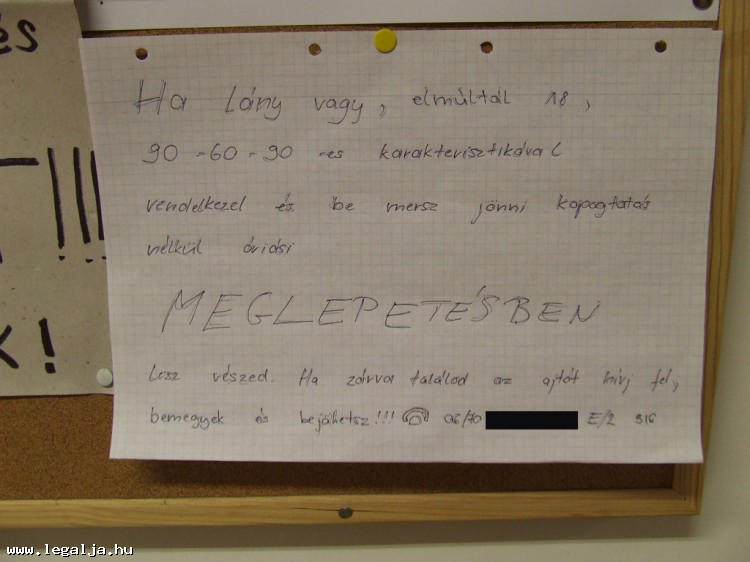 és
!!!
K!
Ha Lány vagy, elmúltál 18,
90-60-90-es karakterisztikával
rendelkezel és be mersz jönni kopogtatás
nélkül óriási
MEGLEPETÉSBEN
lesz részed. Ha zárva találod az ajtót hívj fel,
bemegyek és bejöhetsz!!! 06/70 E/2 316
www.legalja.hu